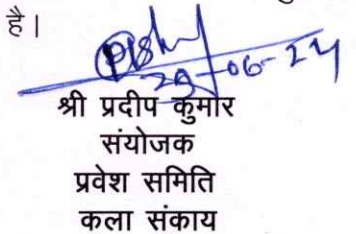 है।
29-06-24
श्री प्रदीप कुमार
संयोजक
प्रवेश समिति
कला संकाय